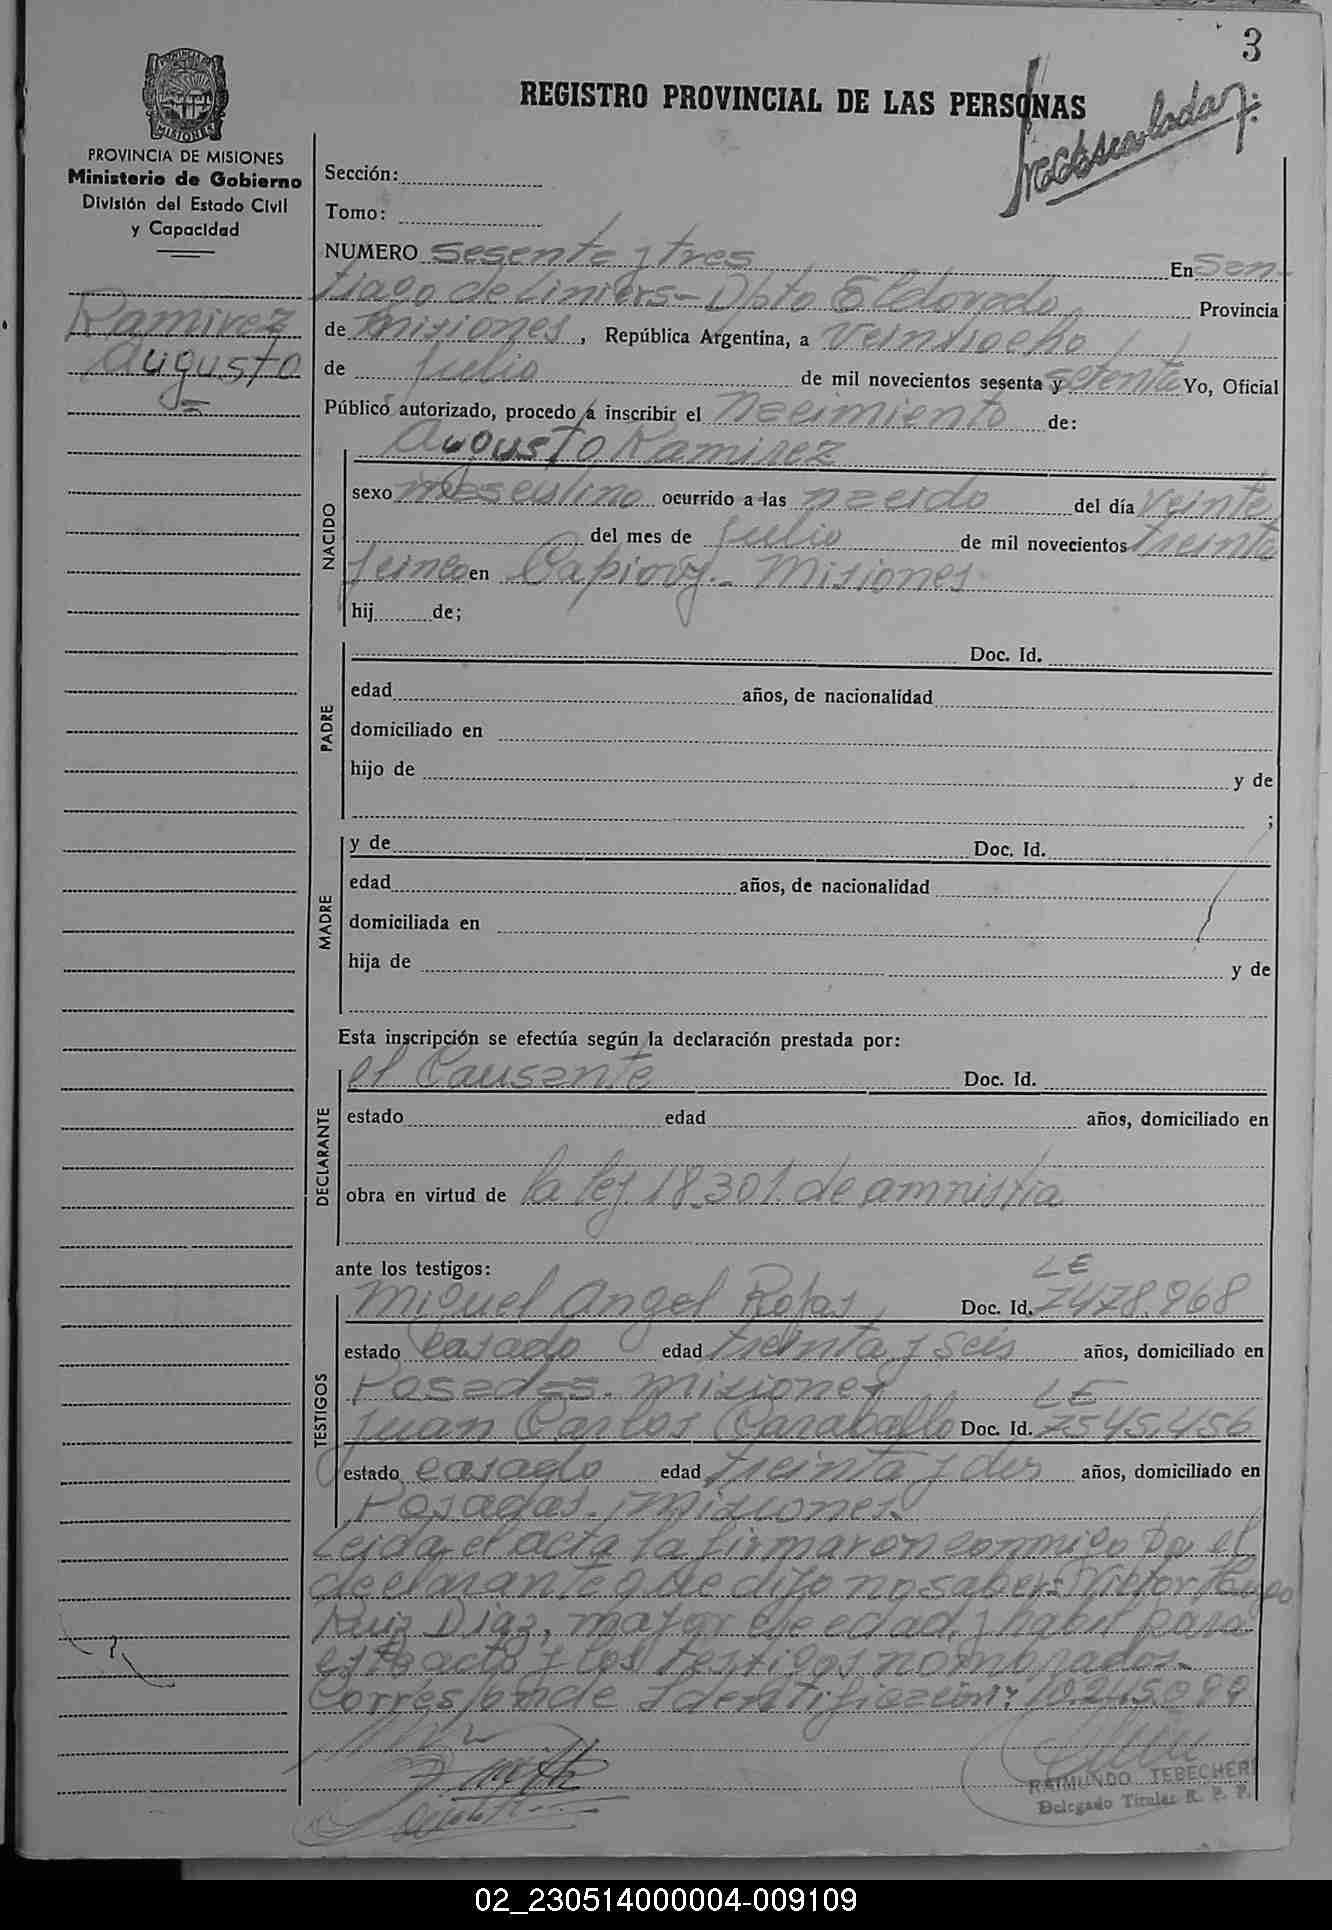 3
REGISTRO PROVINCIAL DE LAS PERSONAS
PROVINCIA DE MISIONES
Ministerio de Gobierno
División del Estado Civil
y Capacidad
Ramirez
Augusto
Sección:
Tomo:
NUMERO sesenta y tres En San-
tiago de Liniers - Dpto Eldorado Provincia
de Misiones, República Argentina, a veintiocho
de julio de mil novecientos sesenta y setenta Yo, Oficial
Público autorizado, procedo a inscribir el nacimiento de:
Augusto Ramirez
NACIDO
sexo masculino ocurrido a las nacido del día veinte
del mes de julio de mil novecientos treinta
y cinco en Capiovy - Misiones
hij de;
PADRE
Doc. Id.
edad años, de nacionalidad
domiciliado en
hijo de y de
;
MADRE
y de Doc. Id.
edad años, de nacionalidad
domiciliada en
hija de y de
Esta inscripción se efectúa según la declaración prestada por:
DECLARANTE
el Causante Doc. Id.
estado edad años, domiciliado en
obra en virtud de la ley 18.301 de amnistia
ante los testigos:
TESTIGOS
LE
Miguel Angel Rojas Doc. Id. 7478.968
estado casado edad treinta y seis años, domiciliado en
Posadas. Misiones
LE
Juan Carlos Caraballo Doc. Id. 7545.456
estado casado edad treinta y dos años, domiciliado en
Posadas. Misiones
Leida el acta la firmaron conmigo Por el
declarante que dijo no saber: Victor Hugo
Ruiz Diaz, mayor de edad y habil para
este acto y los testigos nombrados.
Corresponde Identificación: 10.245.099
RAIMUNDO TEBECHERI
Delegado Titular R. P. P.
02_230514000004-009109